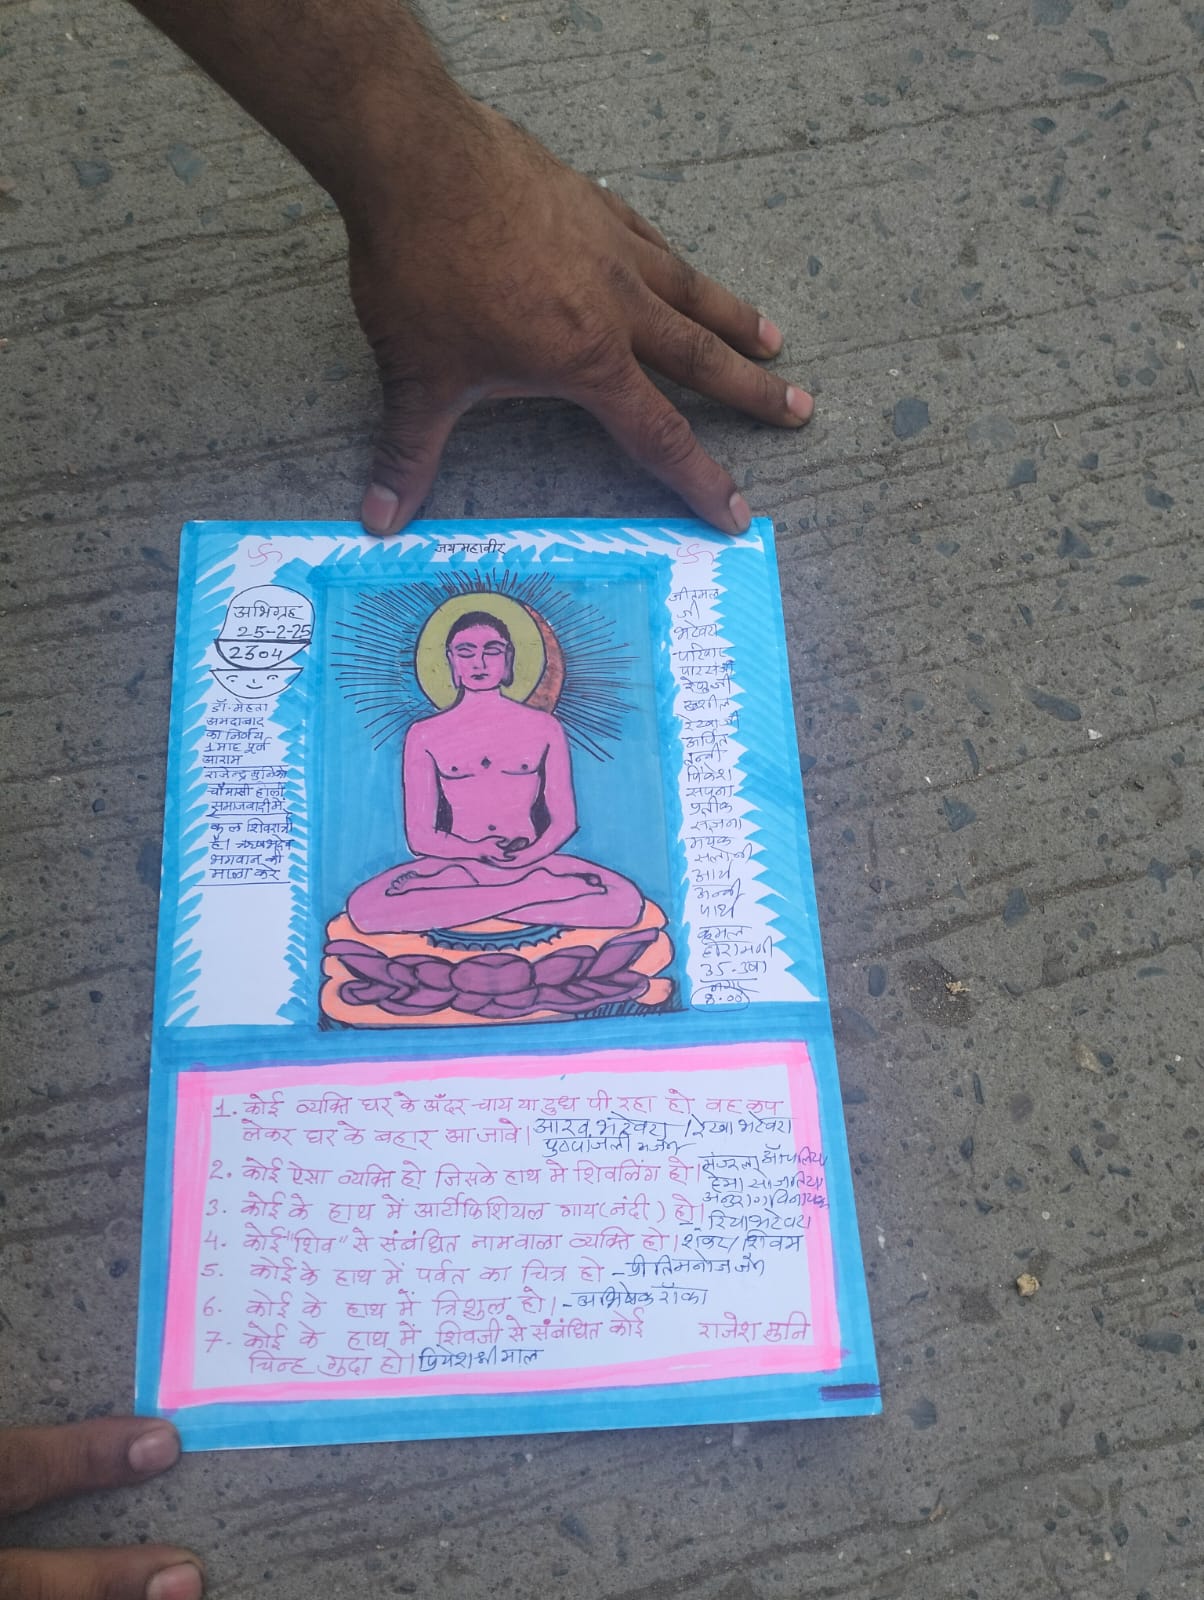 जय महावीर
अभिग्रह
25-2-25
2304
डॉ. मेहता
अमदाबाद
का निर्णय
1 माह पूर्ण
आराम
राजेन्द्र मुनि को
चौमासी हाली
समाजवादी में
कल शिवरात्री
है। ऋषभदेव
भगवान की
माला करे
जी
भटेवरा
परिवार
पारसजी
रेणुजी
सुशील
रेखाजी
अर्पित
पिंकेश
सपना
प्रतीक
सजना
मयंक
सलोनी
आर्य
अन्नी
पार्थ
कमल
हीरामणी
8.00
1. कोई व्यक्ति घर के अँदर चाय या दुध पी रहा हो वह कप
लेकर घर के बहार आ जावे। आरव भटेवरा / रेखा भटेवरा
2. कोई ऐसा व्यक्ति हो जिसके हाथ में शिवलिंग हो।
3. कोई के हाथ में आर्टीफिशियल गाय (नंदी) हो।
- रिया भटेवरा
4. कोई "शिव" से संबंधित नाम वाला व्यक्ति हो। शंकर / शिवम
5. कोई के हाथ में पर्वत का चित्र हो - प्रीति मनोज जैन
6. कोई के हाथ में त्रिशुल हो। - अभिषेक राँका
7. कोई के हाथ में शिवजी से संबंधित कोई राजेश मुनि
चिन्ह गुदा हो। प्रियेश श्रीमाल